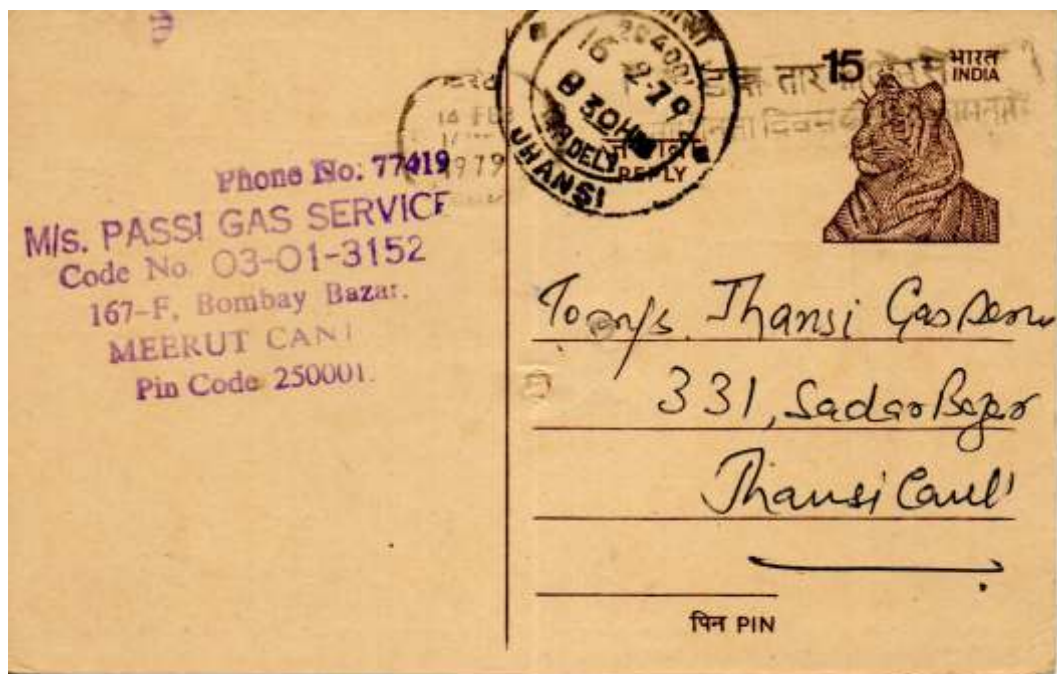 Phone No: 77419
M/s. PASSI GAS SERVICE
Code No 03-01-3152
167-F, Bombay Bazar.
MEERUT CANT
Pin Code 250001.
284001
16-2-79
8 30H
DELY
JHANSI
14 FEB
1979
15 भारत
INDIA
डाक तार
REPLY
To M/s. Jhansi Gas Serv
331, Sadar Bazar
Jhansi Cantt
पिन PIN